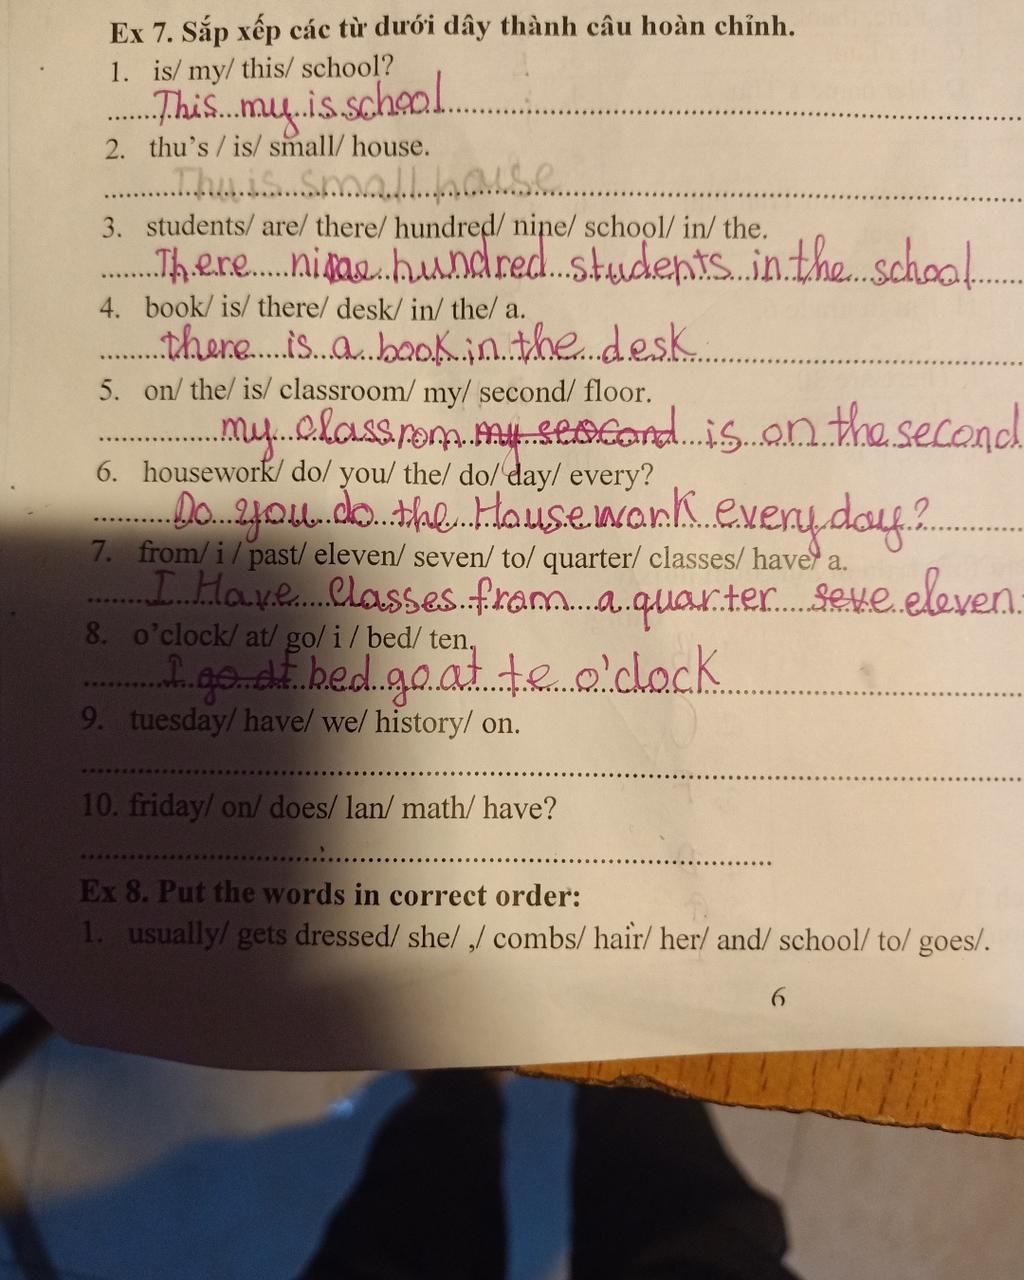 Ex 7. Sắp xếp các từ dưới dây thành câu hoàn chỉnh.
1. is/ my/ this/ school?
This my is school
2. thu's / is/ small/ house.
Thu is small house
3. students/ are/ there/ hundred/ nine/ school/ in/ the.
There nine hundred students in the school
4. book/ is/ there/ desk/ in/ the/ a.
there is a book in the desk
5. on/ the/ is/ classroom/ my/ second/ floor.
my classrom my second is on the second
6. housework/ do/ you/ the/ do/ day/ every?
Do you do the Housework every day?
7. from/ i / past/ eleven/ seven/ to/ quarter/ classes/ have/ a.
I Have Classes from a quarter seve eleven
8. o'clock/ at/ go/ i / bed/ ten.
I go at bed go at te o'clock
9. tuesday/ have/ we/ history/ on.
10. friday/ on/ does/ lan/ math/ have?
Ex 8. Put the words in correct order:
1. usually/ gets dressed/ she/ ,/ combs/ hair/ her/ and/ school/ to/ goes/.
6